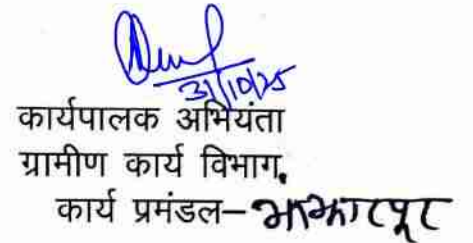 31/10/25
कार्यपालक अभियंता
ग्रामीण कार्य विभाग,
कार्य प्रमंडल–झंझारपुर